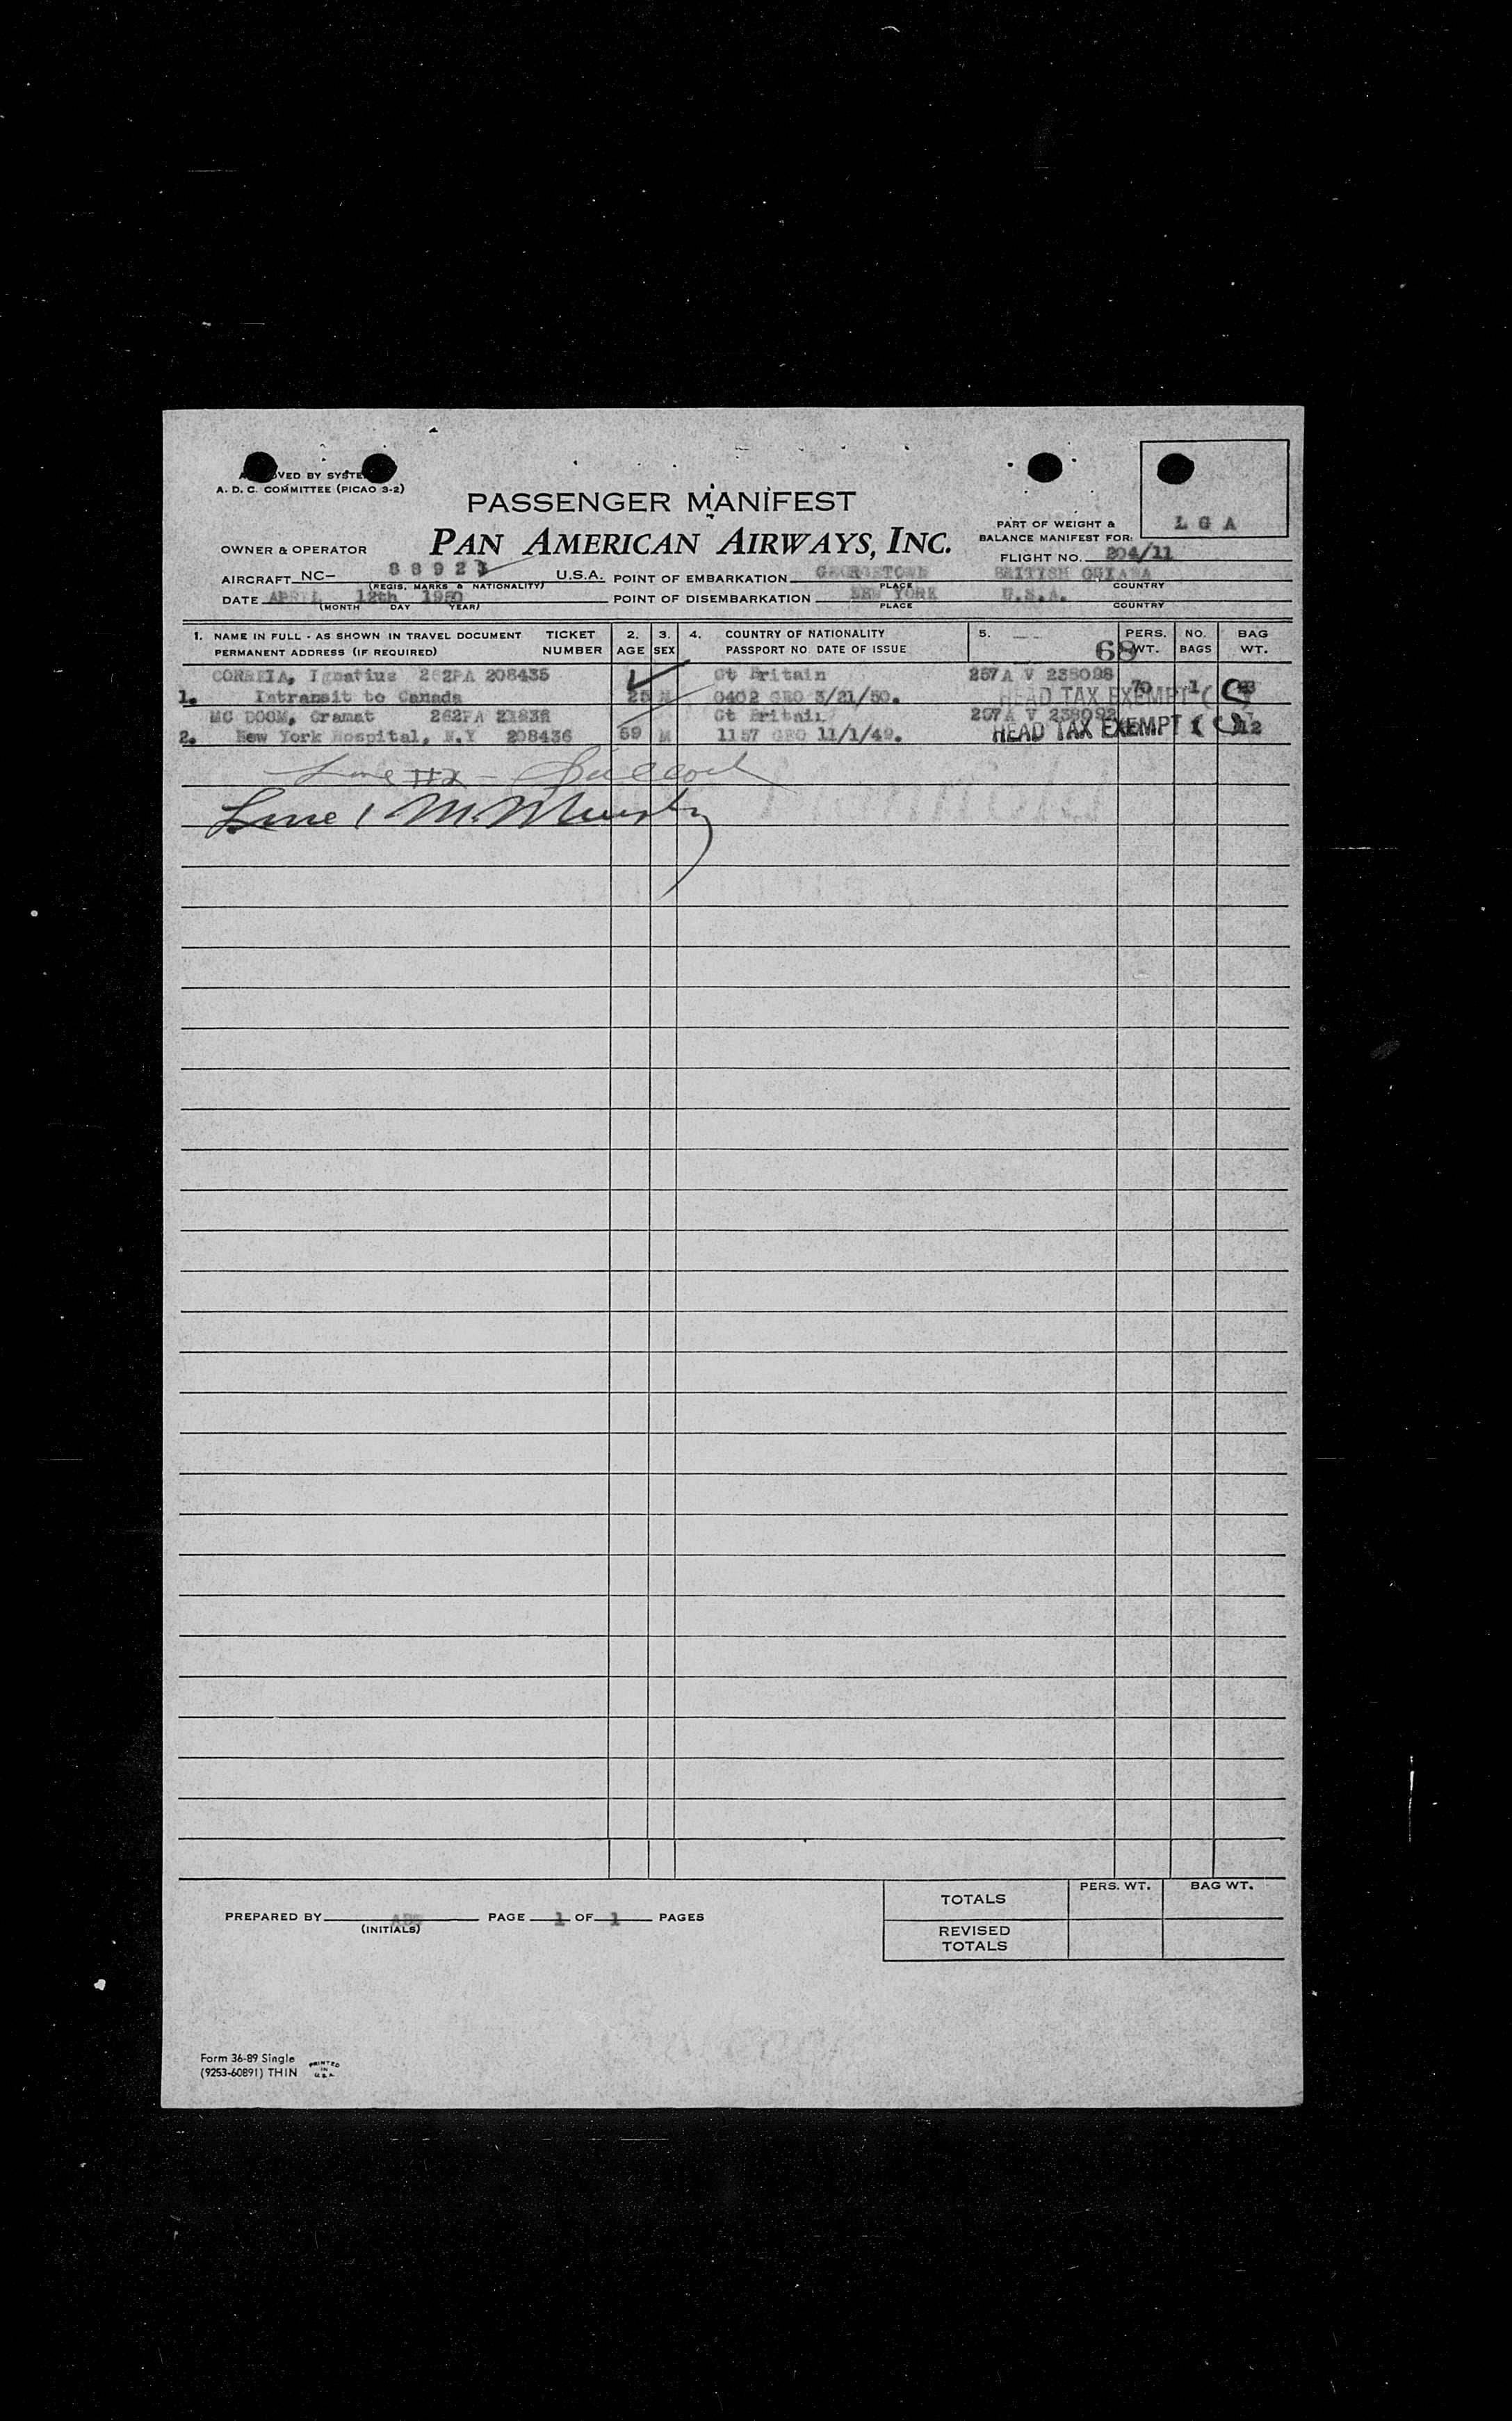 APPROVED BY SYSTEM
A. D. C. COMMITTEE (PICAO 3-2)
PASSENGER MANIFEST
PART OF WEIGHT &
BALANCE MANIFEST FOR:
L G A
OWNER & OPERATOR
PAN AMERICAN AIRWAYS, INC.
FLIGHT NO. 204/11
AIRCRAFT NC- 88921 U.S.A. POINT OF EMBARKATION GEORGETOWN BRITISH GUIANA
(REGIS. MARKS & NATIONALITY) PLACE COUNTRY
DATE APRIL 12th 1950 POINT OF DISEMBARKATION NEW YORK U.S.A.
(MONTH DAY YEAR) PLACE COUNTRY
1. NAME IN FULL - AS SHOWN IN TRAVEL DOCUMENT TICKET 2. 3. 4. COUNTRY OF NATIONALITY 5. PERS. NO. BAG
PERMANENT ADDRESS (IF REQUIRED) NUMBER AGE SEX PASSPORT NO. DATE OF ISSUE 68 WT. BAGS WT.
CORREIA, Ignatius 262PA 208435 Gt Britain 257A V 238098
1. Intransit to Canada 25 M 0402 GEO 3/21/50. HEAD TAX EXEMPT ( C ) 70 1
MC DOOM, Gramat 262PA Gt Britain 257A V 238092
2. New York Hospital, N.Y 208436 59 M 1157 GEO 11/1/49. HEAD TAX EXEMPT ( C ) 1 12
Line
Line 1 M. Murphy
PREPARED BY PAGE 1 OF 1 PAGES
(INITIALS)
PERS. WT. BAG WT.
TOTALS
REVISED
TOTALS
Form 36-89 Single
(9253-60891) THIN
PRINTED
IN
U.S.A.